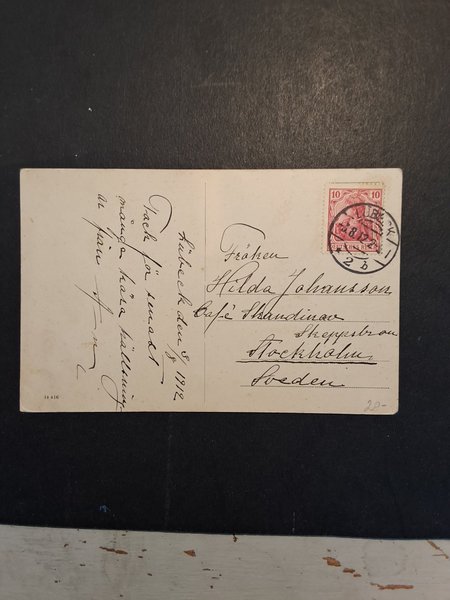 Lübeck den 8/8 1912
Tack för senast
många kära hälsningar
från
10 10
LÜBECK
8.12
2 b
Fröken
Hilda Johansson
Café Skandinav
Skeppsbron
Stockholm
Sveden
20-